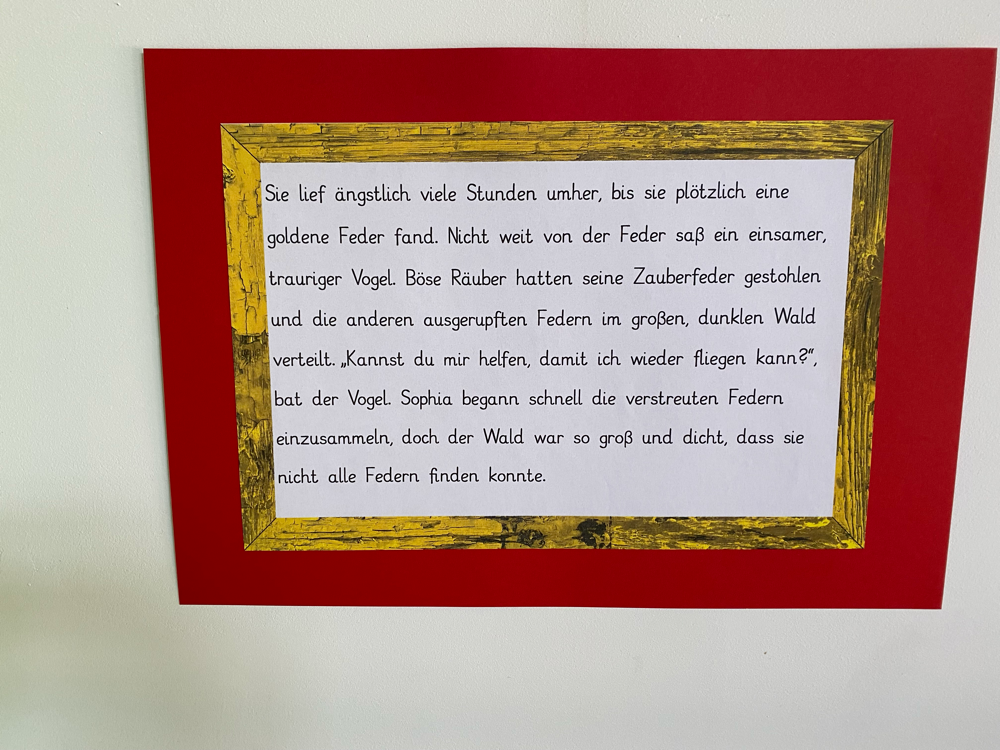 Sie lief ängstlich viele Stunden umher, bis sie plötzlich eine
goldene Feder fand. Nicht weit von der Feder saß ein einsamer,
trauriger Vogel. Böse Räuber hatten seine Zauberfeder gestohlen
und die anderen ausgerupften Federn im großen, dunklen Wald
verteilt. „Kannst du mir helfen, damit ich wieder fliegen kann?“,
bat der Vogel. Sophia begann schnell die verstreuten Federn
einzusammeln, doch der Wald war so groß und dicht, dass sie
nicht alle Federn finden konnte.